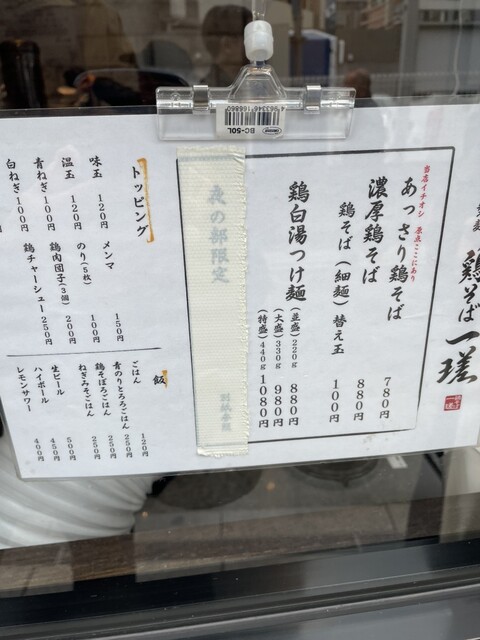 4963346168860
BC-50L
鶏そば 一瑳
当店イチオシ 原点ここにあり
あっさり鶏そば 780円
濃厚鶏そば 880円
鶏そば(細麺) 替え玉 100円
鶏白湯つけ麺
(並盛) 220g 880円
(大盛) 330g 980円
(特盛) 440g 1080円
夜の部限定
トッピング
味玉 120円
温玉 120円
青ねぎ 100円
白ねぎ 100円
メンマ 150円
のり(5枚) 100円
鶏肉団子(3個) 200円
鶏チャーシュー 250円
飯
ごはん 120円
青のりとろろごはん 250円
鶏そぼろごはん 250円
ねぎみそごはん 250円
生ビール 500円
ハイボール 450円
レモンサワー 400円